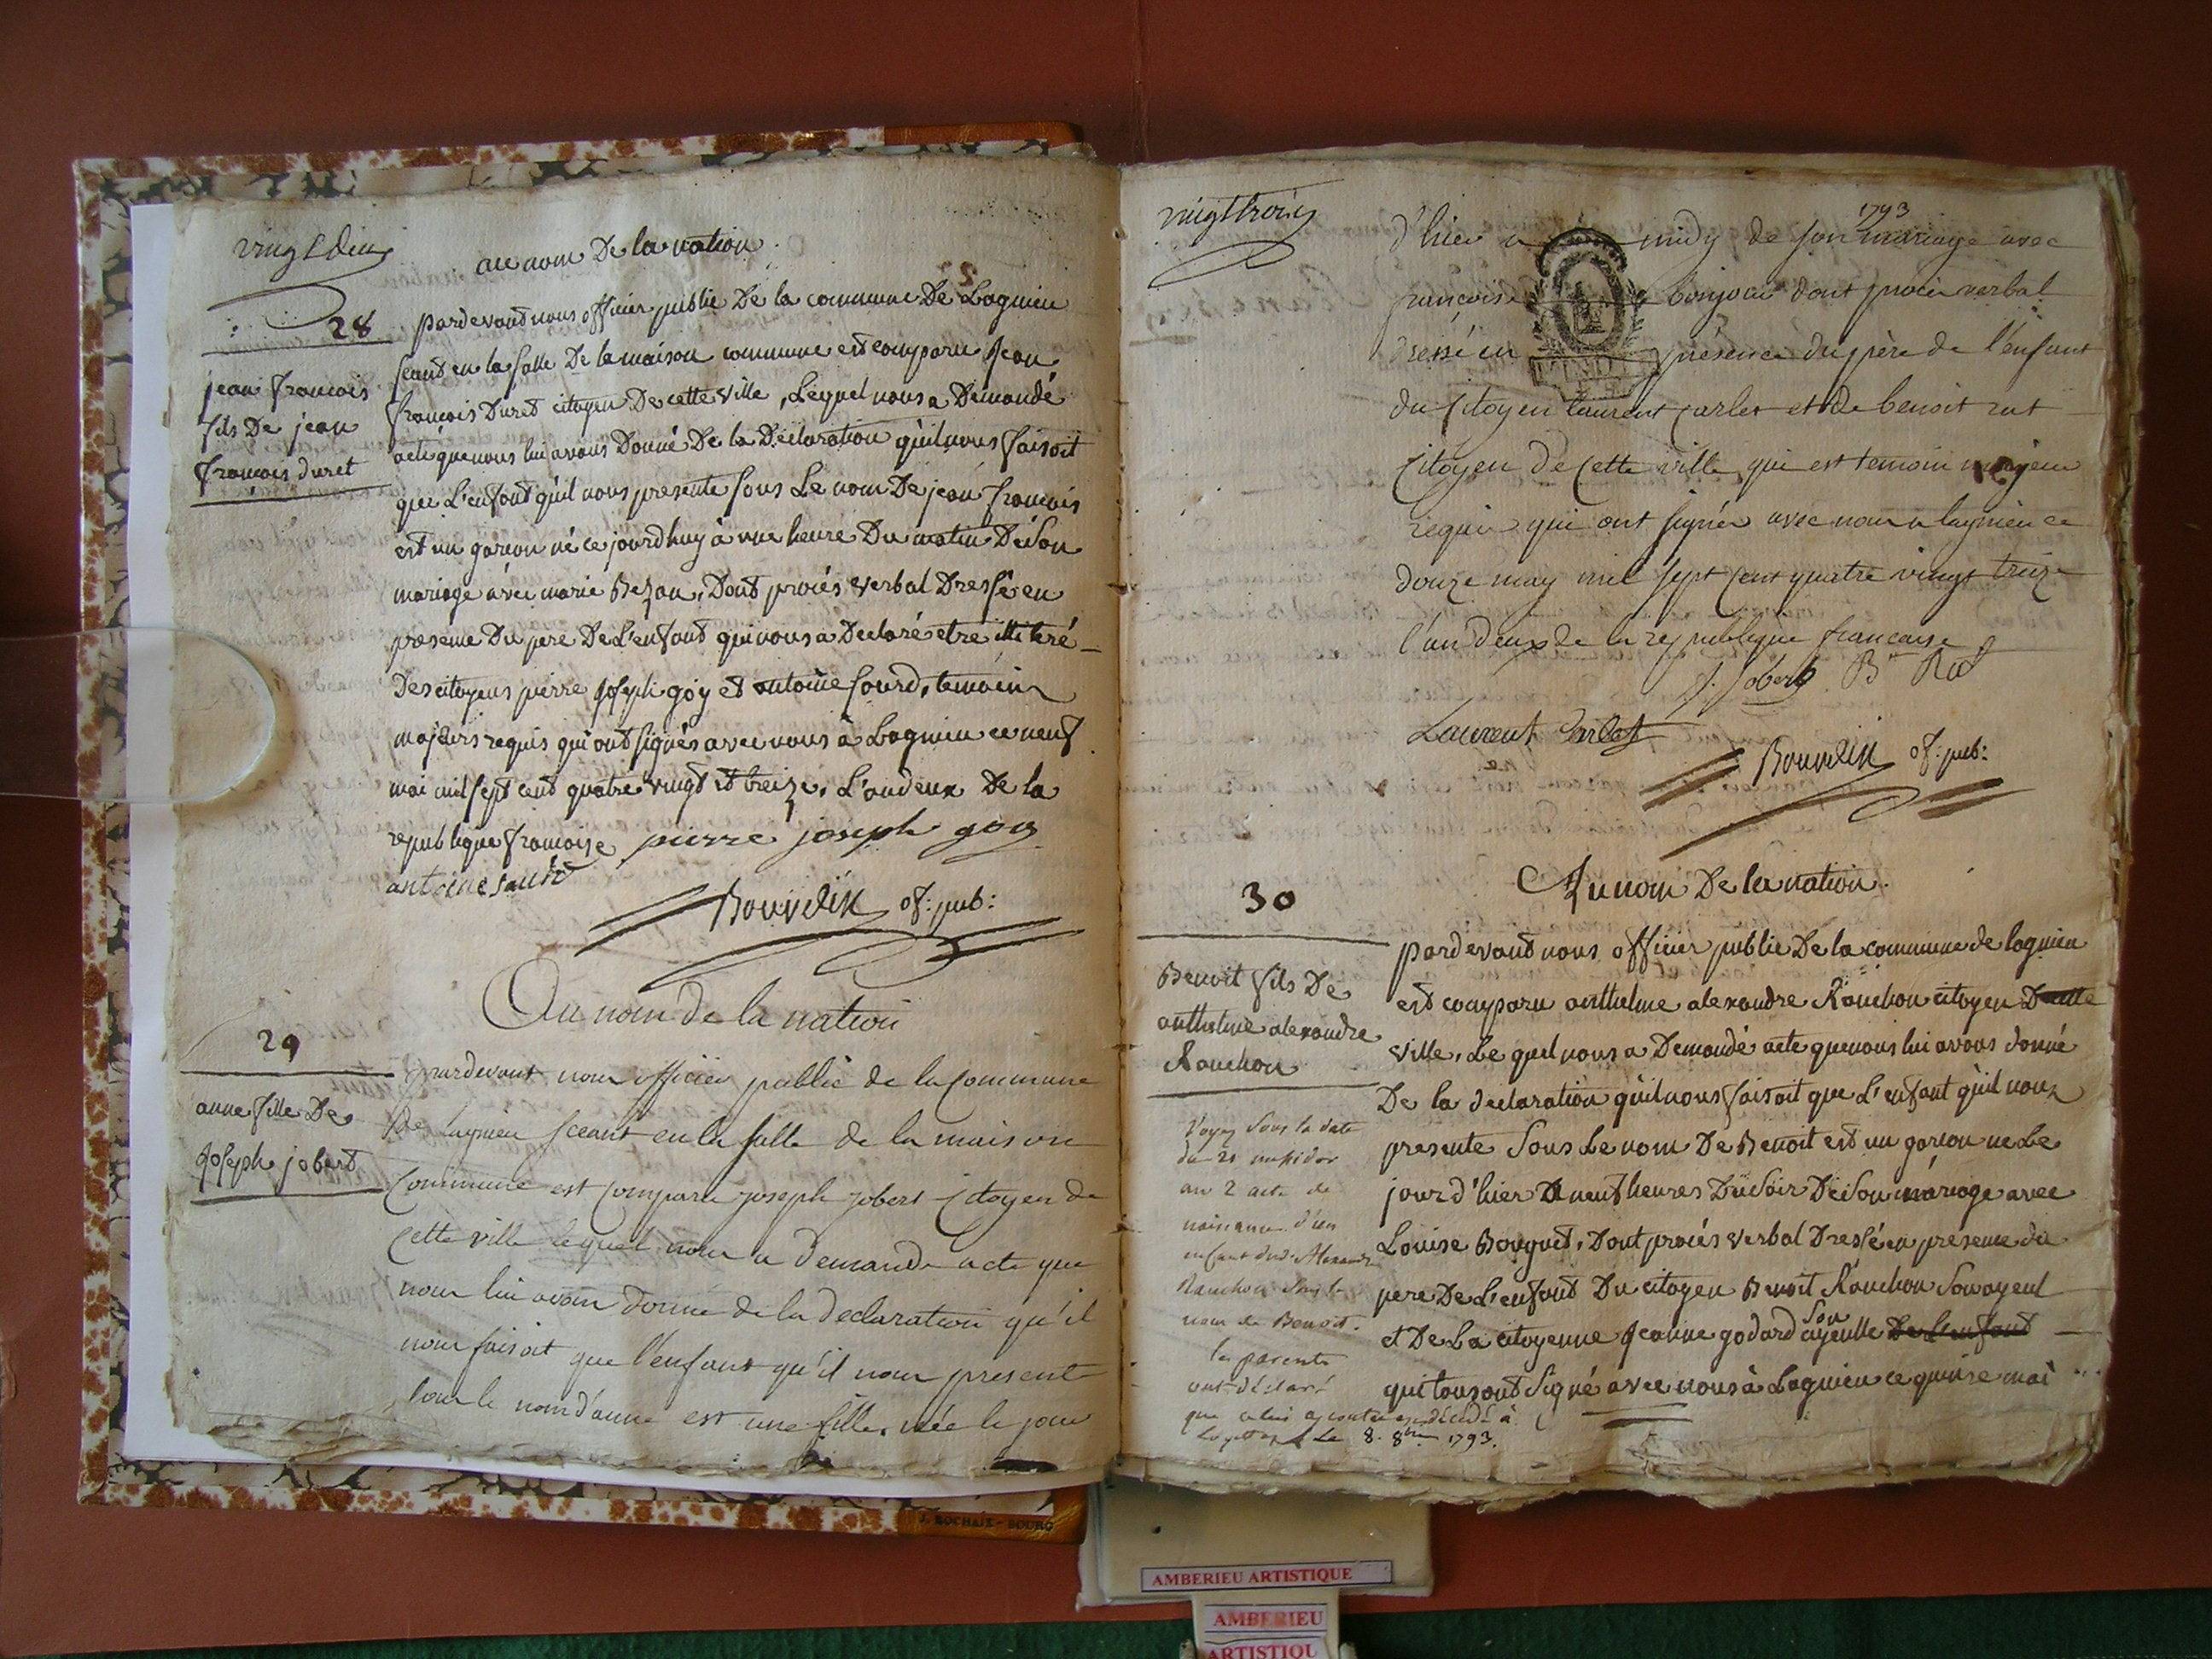 vingt deux
au nom De la nation.
28
jean francois
fils De jean
francois duret
pardevant nous officier public De la commune De Lagnieu
seant en la salle De la maison commune est comparu Jean
francois Duret citoyen De cette ville, Lequel nous a Demandé
acte que nous lui avons Donné De la Declaration qu'il nous faisoit
que L'enfant qu'il nous presente sous Le nom De jean francois
est un garcon né ce jourd'huy à une heure Du matin De son
mariage avec marie Bezan, Dont procés verbal Dressé en
presence Du pere De L'enfant qui nous a Declaré etre illiteré
Des citoyens pierre Joseph goy et antoine sourd, temoins
majeurs requis qui ont signés avec nous à Lagnieu ce neuf
mai mil sept cent quatre vingt et treize, L'an deux De la
republique francoise pierre joseph goy
antoine
Bouvelin of: pub:
Au nom de la nation
29
anne fille De
Joseph jobert
Pardevant nous officier public de la commune
de Lagnieu sceant en la salle de la maison
commune est comparu joseph jobert citoyen de
cette ville lequel nous a demandé acte que
nous lui avons donné de la declaration qu'il
nous faisoit que l'enfant qu'il nous present
sous le nom d'anne est une fille née le jour
vingt trois
1793
d'hier a midy de son mariage avec
francoise bonjour dont procès verbal
dressé en présence du père de l'enfant
du citoyen laurent carlet et de benoit rut
citoyen de cette ville qui est temoin majeur
requis qui ont signés avec nous a lagnieu ce
douze may mil sept cent quatre vingt treize
l'an deux de la republique francaise
J. Jobert Bt Rut
Laurent Carlet
Bouvelin of: pub:
Au nom De la nation.
30
Benoit fils De
anthelme alexandre
Rouchon
pardevant nous officier public De la commune de lagnieu
est comparu anthelme alexandre Rouchon citoyen De cette
ville, Le quel nous a Demandé acte que nous lui avons donné
De la declaration qu'il nous faisoit que L'enfant qu'il nous
presente sous Le nom De Benoit est un garcon né Le
jour d'hier a neuf heures Du soir De son mariage avec
Louise Bouguet, Dont procés verbal Dressé en presence du
pere De L'enfant Du citoyen Benoit Rouchon son ayeul
et De La citoyenne Jeanne godard son ayeulle De L'enfant
qui tous ont signé avec nous à Lagnieu ce quinse mai
Voyez sous la date
du 21 messidor
an 2 acte de
naissance d'un
enfant dud. Alexandre
Rouchon sous le
nom de Benoit.
les parents
ont déclaré
que celui ci contre est décédé à
le 8. 8bre 1793.
J. ROCHAIX - BOURG
AMBERIEU ARTISTIQUE
AMBERIEU
ARTISTIQU